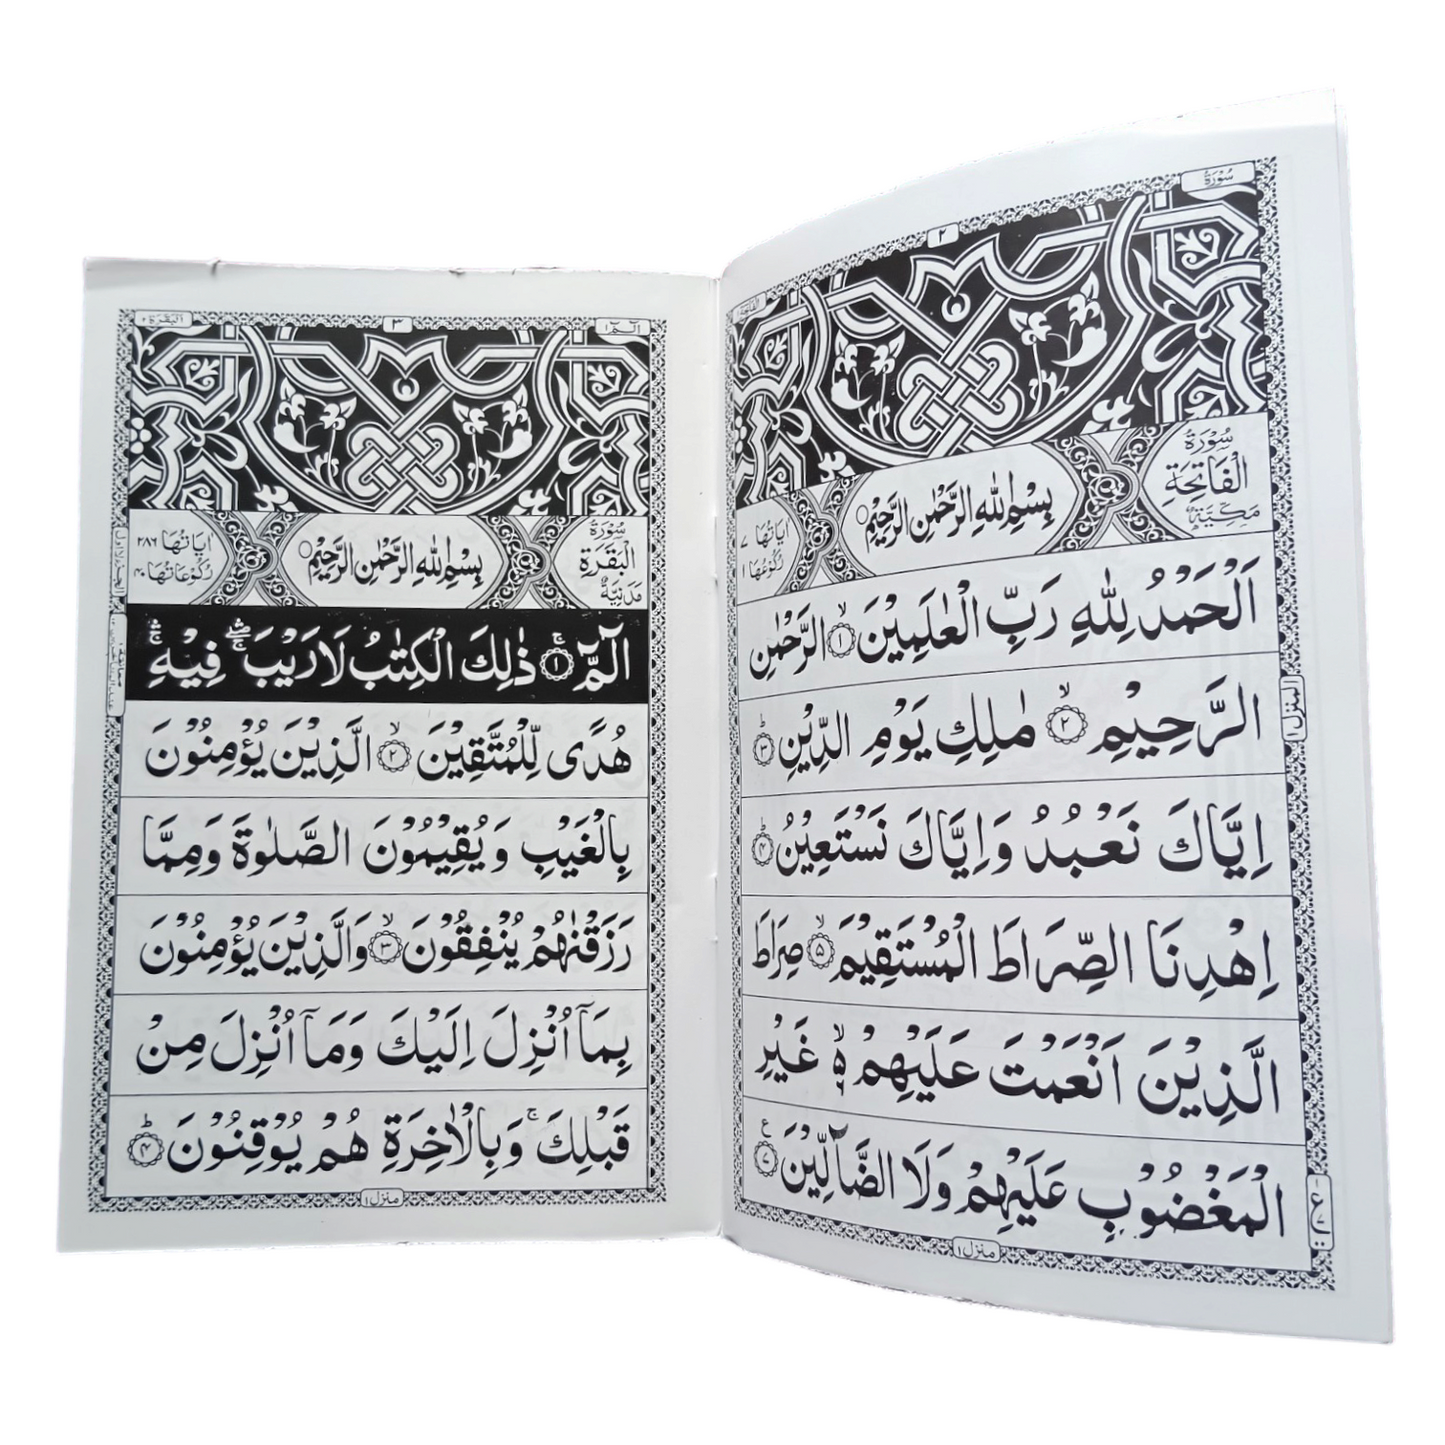 سُوْرَةُ
٢
الفاتحة
سُوْرَةُ الْفَاتِحَةِ مَكِّيَّةٌ
بِسْمِ اللهِ الرَّحْمٰنِ الرَّحِيْمِ
اٰيَاتُهَا ٧
رُكُوْعُهَا ١
اَلْحَمْدُ لِلّٰهِ رَبِّ الْعٰلَمِيْنَ ۙ﴿١﴾ الرَّحْمٰنِ
الرَّحِيْمِ ۙ﴿٢﴾ مٰلِكِ يَوْمِ الدِّيْنِ ؕ﴿٣﴾
اِيَّاكَ نَعْبُدُ وَاِيَّاكَ نَسْتَعِيْنُ ؕ﴿٤﴾
اِهْدِنَا الصِّرَاطَ الْمُسْتَقِيْمَ ۙ﴿٥﴾ صِرَاطَ
الَّذِيْنَ اَنْعَمْتَ عَلَيْهِمْ ۙ۵ غَيْرِ
الْمَغْضُوْبِ عَلَيْهِمْ وَلَا الضَّآلِّيْنَ ﴿٧﴾ ع
المنزل ١
منزل ١
الٓمّٓ ١
٣
البقرة ٢
سُوْرَةُ الْبَقَرَةِ مَدَنِيَّةٌ
بِسْمِ اللهِ الرَّحْمٰنِ الرَّحِيْمِ
اٰيَاتُهَا ٢٨٦
رُكُوْعَاتُهَا ٤٠
الٓمّٓ ۚ﴿١﴾ ذٰلِكَ الْكِتٰبُ لَا رَيْبَ ۛۖۚ فِيْهِ ۛۚ
هُدًى لِّلْمُتَّقِيْنَ ۙ﴿٢﴾ الَّذِيْنَ يُؤْمِنُوْنَ
بِالْغَيْبِ وَيُقِيْمُوْنَ الصَّلٰوةَ وَمِمَّا
رَزَقْنٰهُمْ يُنْفِقُوْنَ ۙ﴿٣﴾ وَالَّذِيْنَ يُؤْمِنُوْنَ
بِمَآ اُنْزِلَ اِلَيْكَ وَمَآ اُنْزِلَ مِنْ
قَبْلِكَ ۚ وَبِالْاٰخِرَةِ هُمْ يُوْقِنُوْنَ ؕ﴿٤﴾
منزل ١